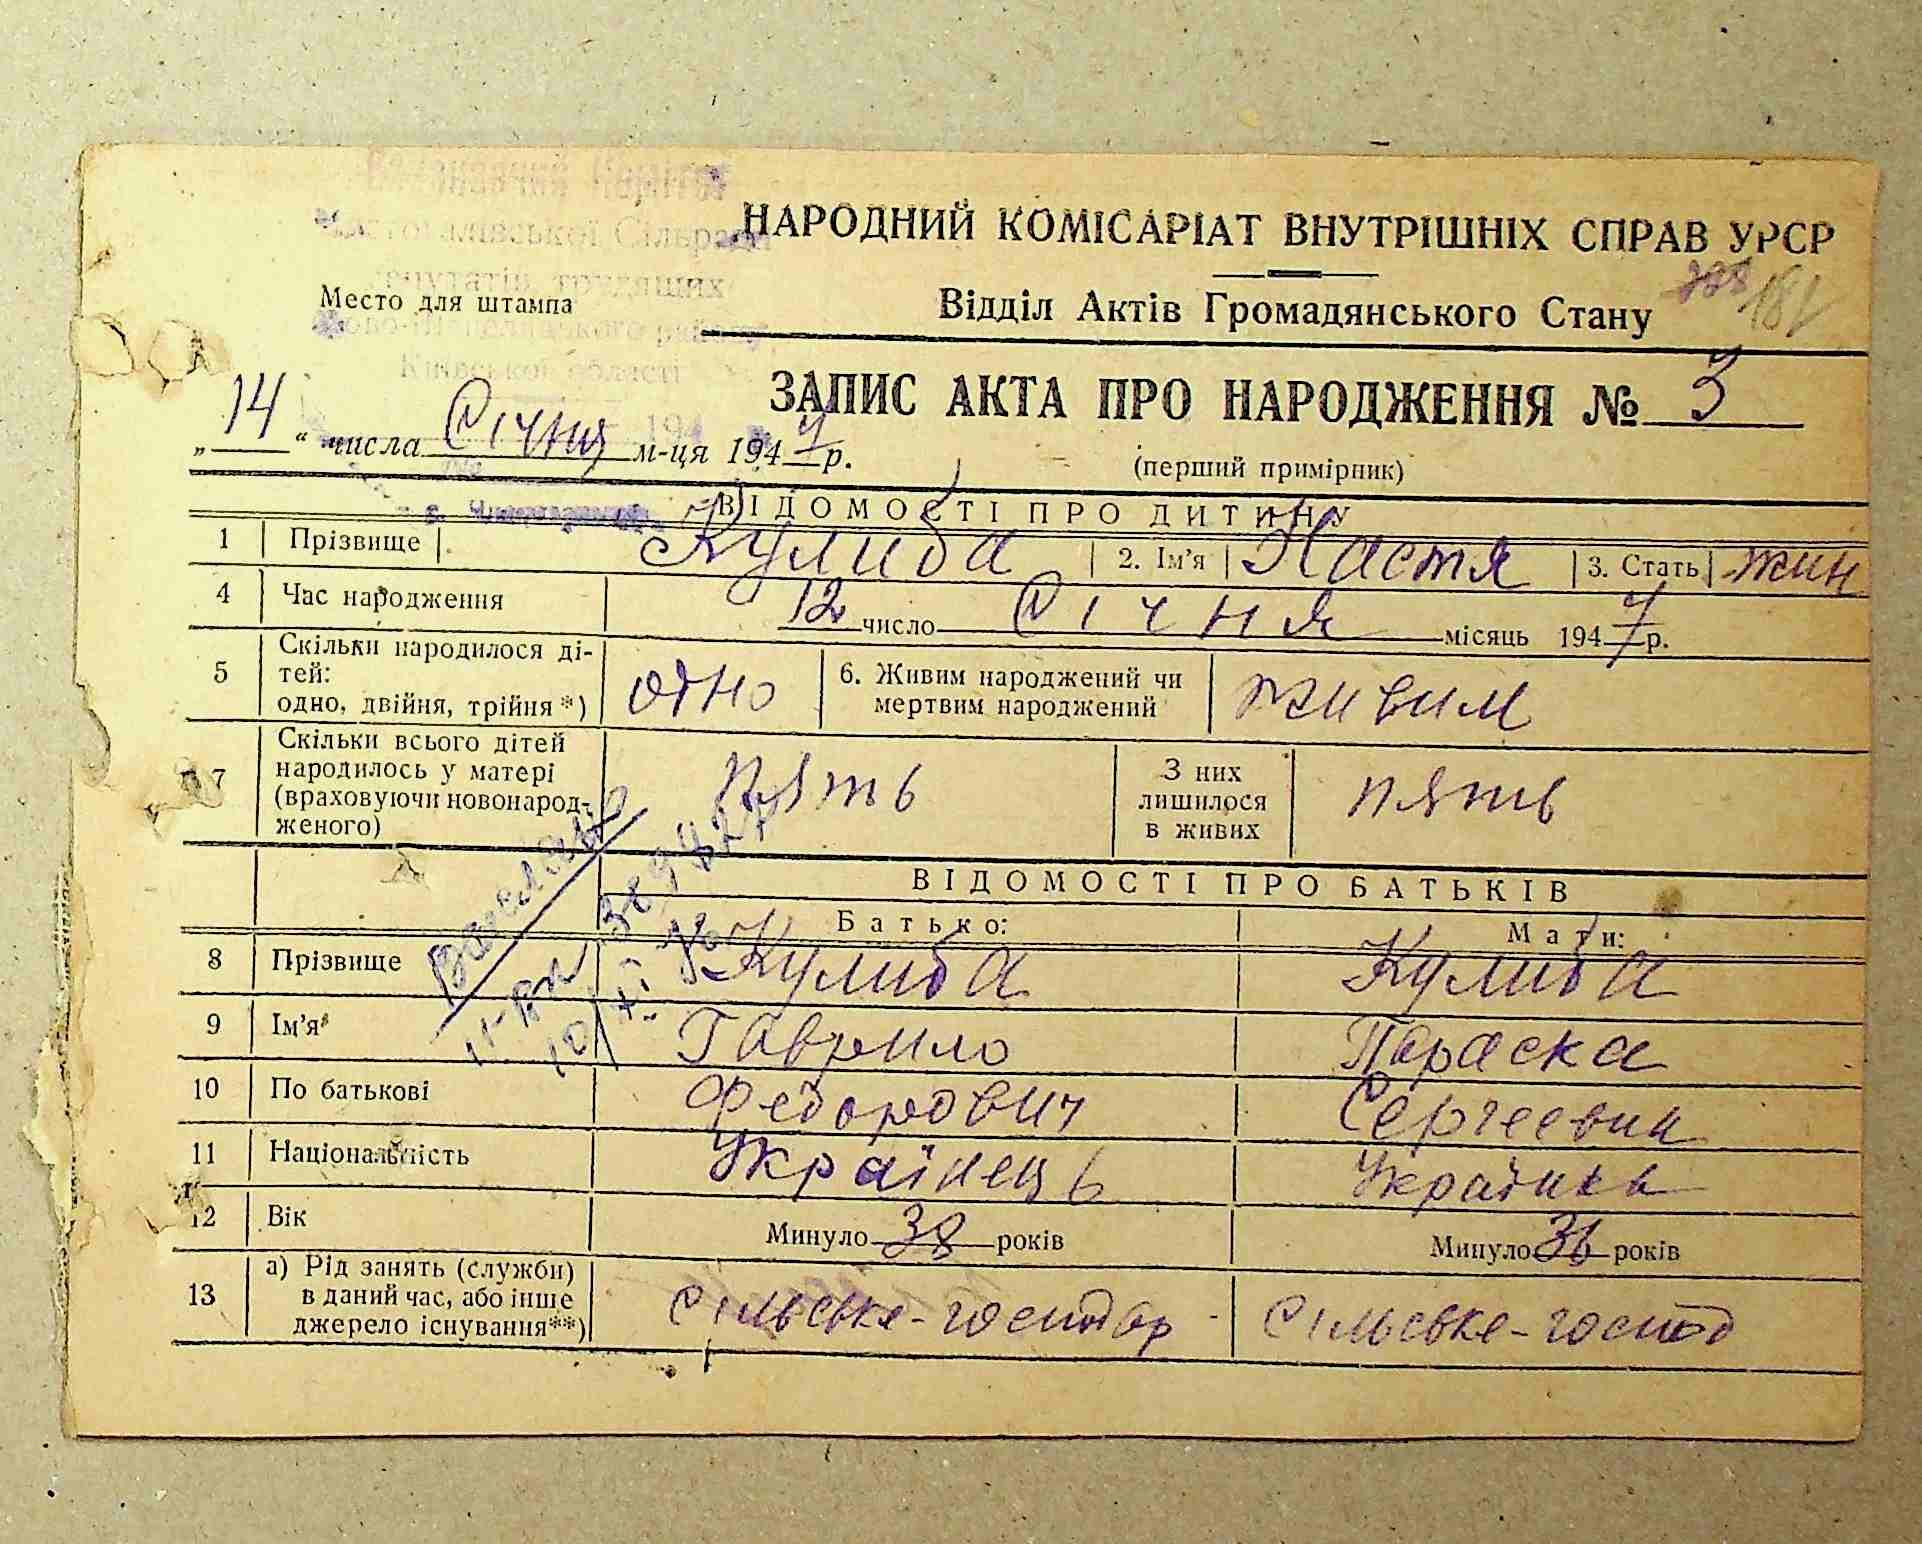 Виконавчий Комітет
Сільради
депутатів трудящих
району
Київської області
НАРОДНИЙ КОМІСАРІАТ ВНУТРІШНІХ СПРАВ УРСР
Место для штампа
Відділ Актів Громадянського Стану
ЗАПИС АКТА ПРО НАРОДЖЕННЯ № 3
„14“ числа Січня м-ця 1947 р.
(перший примірник)
ВІДОМОСТІ ПРО ДИТИНУ
1 Прізвище Кулиба 2. Ім'я Настя 3. Стать жин
4 Час народження 12 число Січня місяць 1947 р.
5 Скільки народилося ді-
тей:
одно, двійня, трійня*) одно 6. Живим народжений чи
мертвим народжений живим
7 Скільки всього дітей
народилось у матері
(враховуючи новонарод-
женого) пять З них
лишилося
в живих пять
ВІДОМОСТІ ПРО БАТЬКІВ
Батько: Мати:
8 Прізвище Кулиба Кулиба
9 Ім'я Гаврило Параска
10 По батькові Федорович Сергеевни
11 Національність Українець Украінка
12 Вік Минуло 38 років Минуло 36 років
13 а) Рід занять (служби)
в даний час, або інше
джерело існування**) Сільське-господар Сільське-господ